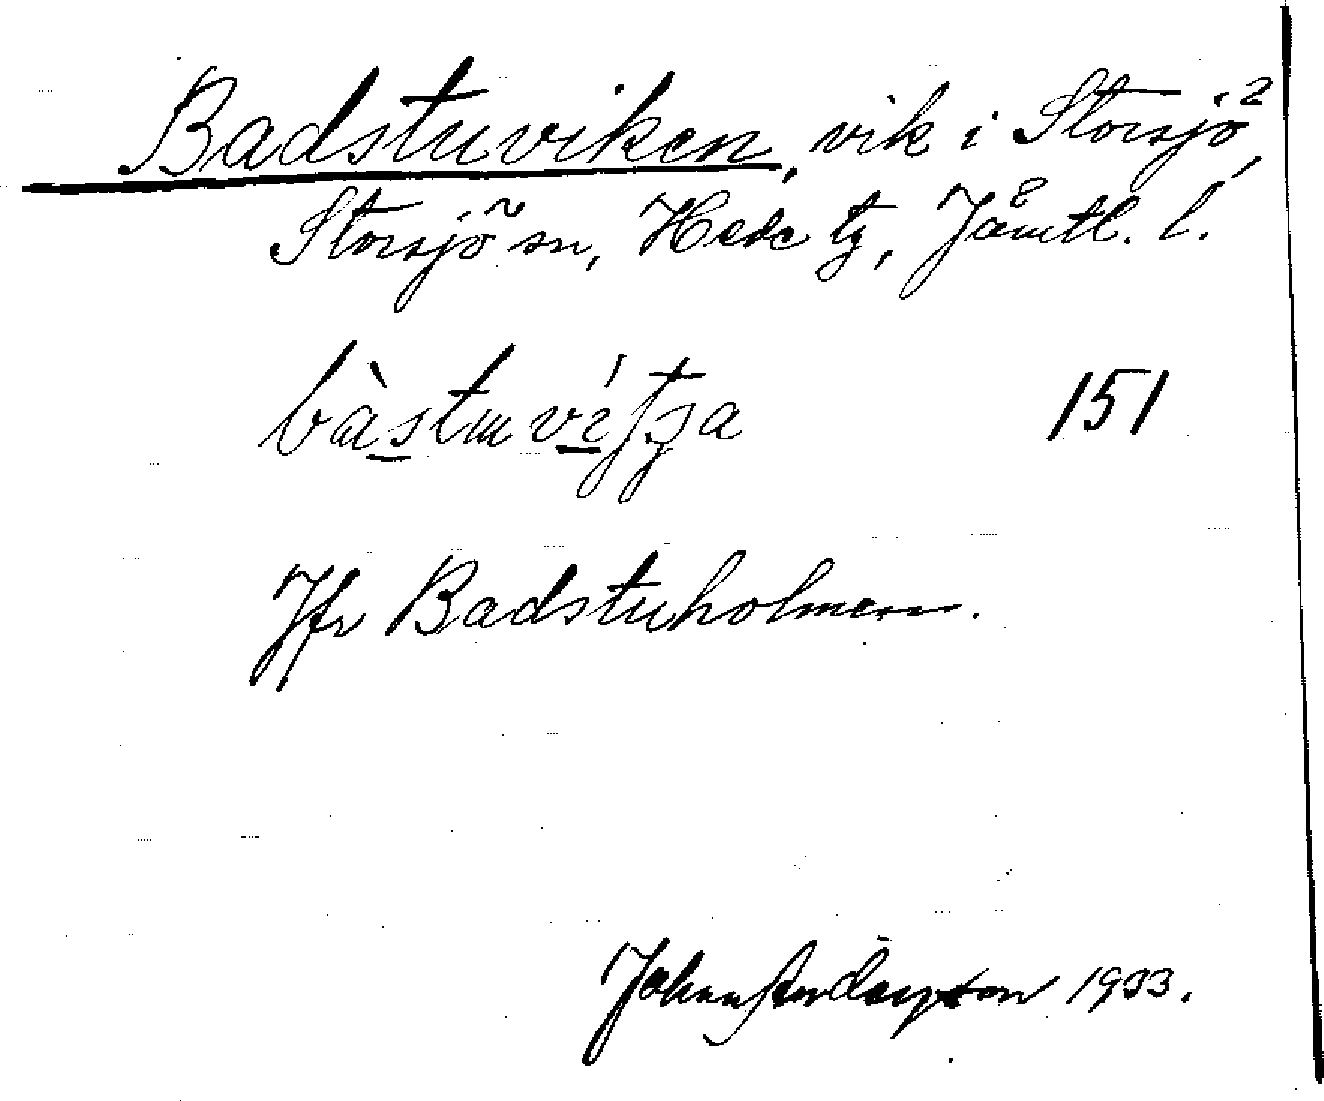 Badstuviken, vik i Storsjö,
Storsjö sn, Hede tg, Jämtl. l.
bàstu ví 151
Jfr Badstuholmen.
Johan Anderson 1933.